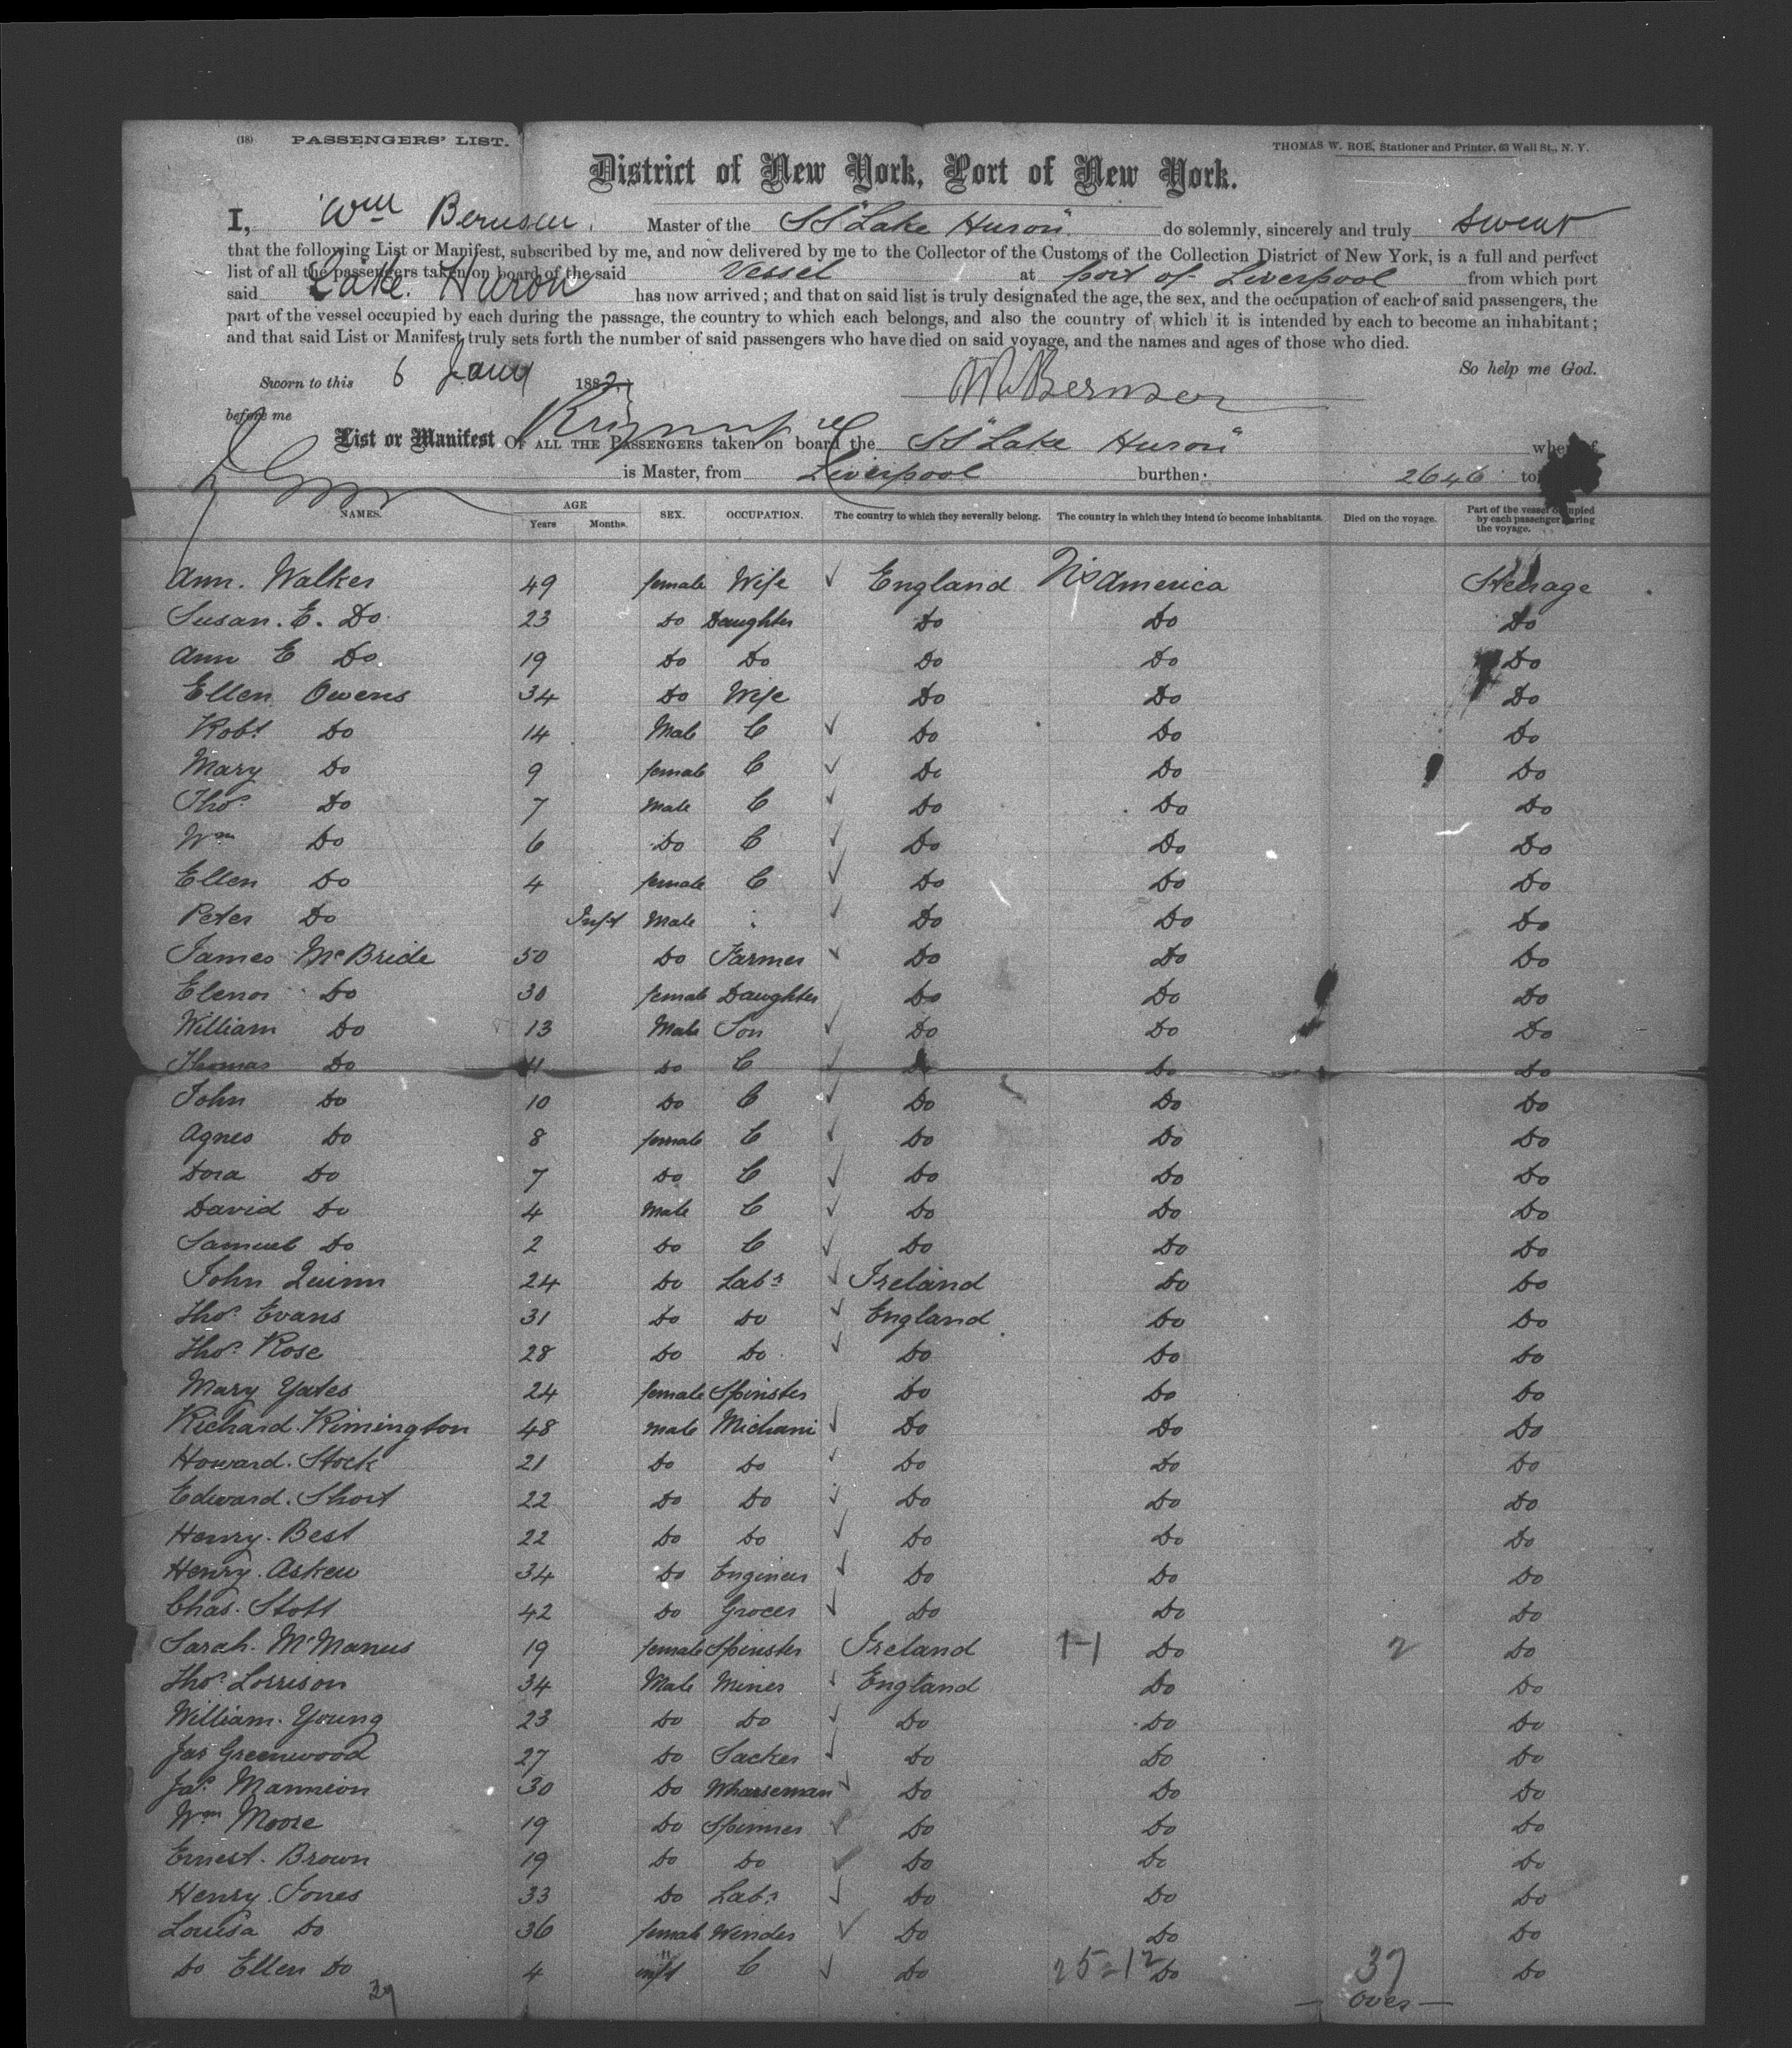 (18) PASSENGERS' LIST.
THOMAS W. ROE, Stationer and Printer, 63 Wall St., N. Y.
District of New York, Port of New York.
I, Wm Bernson. Master of the SS "Lake Huron" do solemnly, sincerely and truly swear
that the following List or Manifest, subscribed by me, and now delivered by me to the Collector of the Customs of the Collection District of New York, is a full and perfect
list of all the passengers taken on board of the said Vessel at port of Liverpool from which port
said Lake Huron has now arrived; and that on said list is truly designated the age, the sex, and the occupation of each of said passengers, the
part of the vessel occupied by each during the passage, the country to which each belongs, and also the country of which it is intended by each to become an inhabitant;
and that said List or Manifest truly sets forth the number of said passengers who have died on said voyage, and the names and ages of those who died.
So help me God.
Sworn to this 6 Jany 1882
Wm Bernson
before me
List or Manifest OF ALL THE PASSENGERS taken on board the SS "Lake Huron" whereof
is Master, from Liverpool burthen 2646
NAMES. AGE Years Months. SEX. OCCUPATION. The country to which they severally belong. The country in which they intend to become inhabitants. Died on the voyage. Part of the vessel occupied by each passenger during the voyage.
Ann. Walker 49 female Wife ✓ England America Steerage
Susan. E. Do 23 Do Daughter Do Do Do
Ann E Do. 19 Do Do Do Do Do
Ellen Owens 34 Do Wife Do Do Do
Robt Do 14 Male C ✓ Do Do Do
Mary Do 9 female C ✓ Do Do Do
Thos. Do 7 Male C ✓ Do Do Do
Wm Do 6 Do C ✓ Do Do Do
Ellen Do 4 female C ✓ Do Do Do
Peter Do Inft Male ✓ Do Do Do
James McBride 50 Do Farmer ✓ Do Do Do
Elenor Do 30 female Daughter Do Do Do
William Do 13 Male Son ✓ Do Do Do
Thomas Do 11 Do C ✓ Do Do Do
John Do 10 Do C ✓ Do Do Do
Agnes Do 8 female C ✓ Do Do Do
Dora Do 7 Do C ✓ Do Do Do
David Do 4 Male C ✓ Do Do Do
Samuel Do 2 Do C ✓ Do Do Do
John Quinn 24 Do Labr ✓ Ireland Do Do
Thos. Evans 31 Do Do ✓ England Do Do
Thos. Rose 28 Do Do ✓ Do Do Do
Mary Yates 24 female Spinster Do Do Do
Richard. Rimington 48 male Michani ✓ Do Do Do
Howard. Stock 21 Do Do ✓ Do Do Do
Edward. Short 22 Do Do ✓ Do Do Do
Henry. Best 22 Do Do ✓ Do Do Do
Henry. Askew 34 Do Engineer ✓ Do Do Do
Chas. Stott 42 Do Grocer ✓ Do Do Do
Sarah. McManus 19 female Spinster Ireland 1-1 Do 2 Do
Thos. Lorrison 34 Male Miner ✓ England Do Do
William. Young 23 Do Do ✓ Do Do Do
Jas Greenwood 27 Do Sacker ✓ Do Do Do
Jas. Mannion 30 Do Wharseman ✓ Do Do Do
Wm Moore 19 Do Spinner ✓ Do Do Do
Ernest. Brown 19 Do Do ✓ Do Do Do
Henry. Jones 33 Do Labr ✓ Do Do Do
Louisa Do 36 female Winder ✓ Do Do Do
Do Ellen Do 4 C ✓ Do 25-12 Do 37 Do
39
— Over —